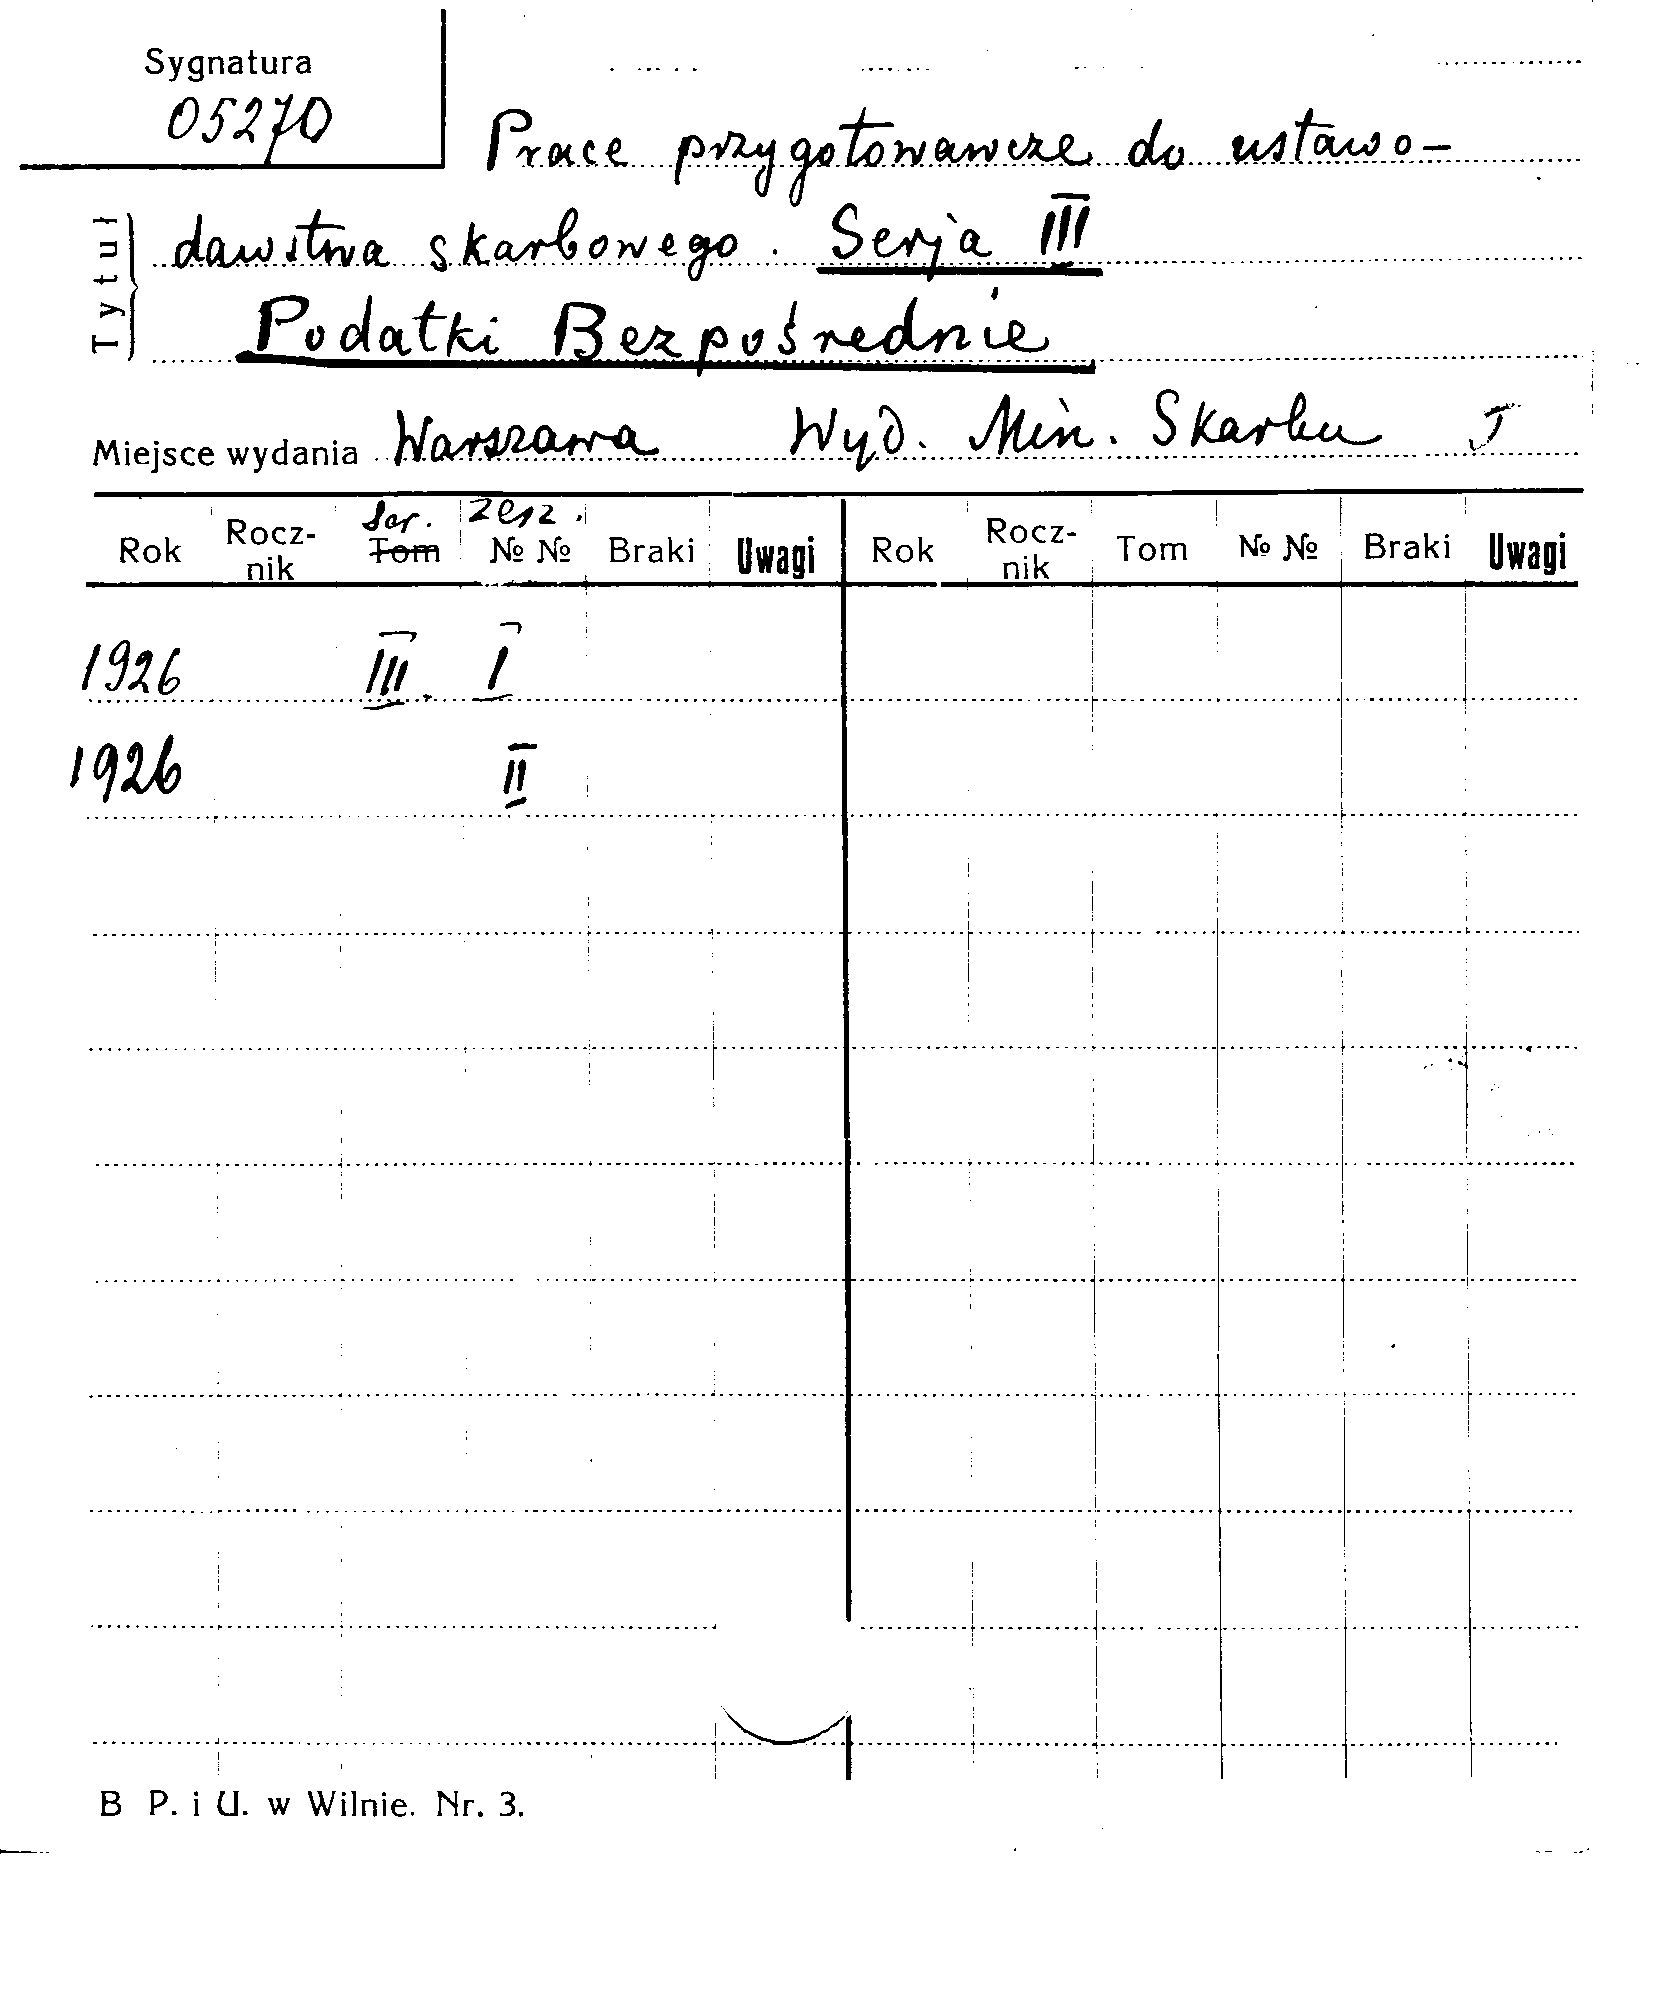 Sygnatura
05270
Prace przygotowawcze do ustawo-
Tytuł
dawstwa skarbowego. Serja III
Podatki Bezpośrednie
Miejsce wydania Warszawa Wyd. Min. Skarbu
Ser. zesz.
Rok Rocz-nik Tom № № Braki Uwagi Rok Rocz-nik Tom № № Braki Uwagi
1926 III. I
1926 II
B P. i U. w Wilnie. Nr. 3.